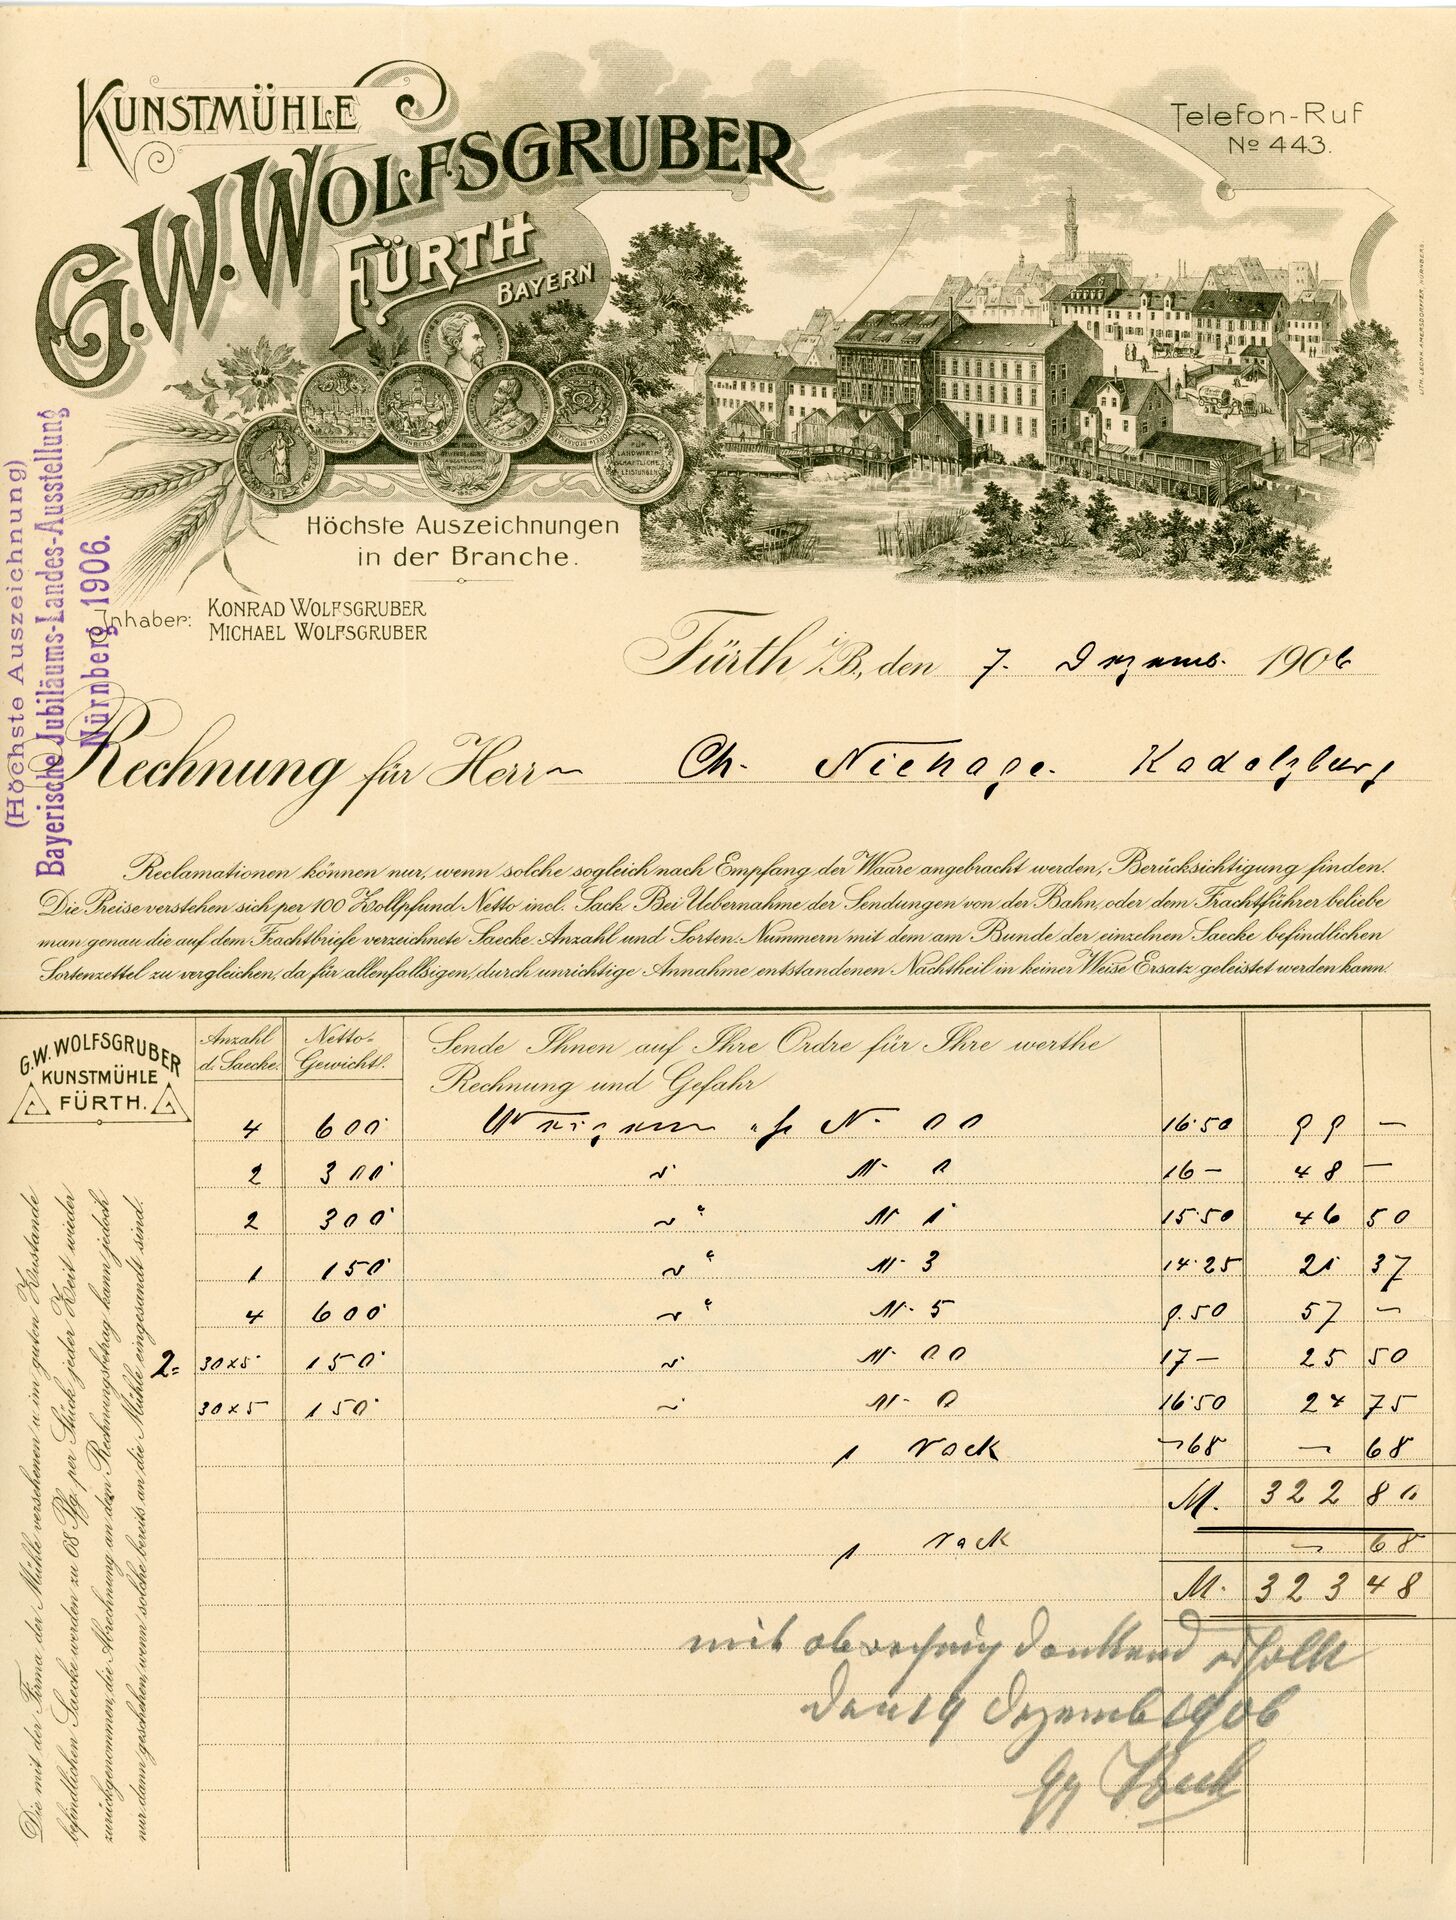 KUNSTMÜHLE
G. W. WOLFSGRUBER
FÜRTH
BAYERN
Telefon-Ruf
No 443.
LITH. LEONH. AMERSDORFFER, NÜRNBERG.
Nürnberg
FÜR
LANDWIRTH
SCHAFTLICHE
LEISTUNGEN
Höchste Auszeichnungen
in der Branche.
(Höchste Auszeichnung)
Bayerische Jubiläums-Landes-Ausstellung
Nürnberg 1906.
Inhaber: KONRAD WOLFSGRUBER
MICHAEL WOLFSGRUBER
Fürth i/B., den 7. Dezemb. 1906
Rechnung für Herrn Ch. Niehage. Kadolzburg
Reclamationen können nur, wenn solche sogleich nach Empfang der Waare angebracht werden, Berücksichtigung finden.
Die Preise verstehen sich per 100 Zollpfund Netto incl. Sack. Bei Uebernahme der Sendungen von der Bahn, oder dem Frachtführer beliebe
man genau die auf dem Frachtbriefe verzeichnete Saecke-Anzahl und Sorten-Nummern mit dem am Bunde der einzelnen Saecke befindlichen
Sortenzettel zu vergleichen, da für allenfallsigen, durch unrichtige Annahme entstandenen Nachtheil in keiner Weise Ersatz geleistet werden kann.
G.W. WOLFSGRUBER
KUNSTMÜHLE
FÜRTH.
Anzahl d. Saecke.
Netto-Gewicht.
Sende Ihnen auf Ihre Ordre für Ihre werthe
Rechnung und Gefahr
4 600 N. 00 16.50 99 —
2 300 N. 0 16 — 48 —
2 300 " N. 1 15.50 46 50
1 150 " N. 3 14.25 21 37
4 600 " N. 5 9.50 57 —
2 = 30 x 5 150 N. 00 17 — 25 50
30 x 5 150 N. 0 16.50 24 75
1 Sack — 68 — 68
M. 322 80
1 Sack — 68
M. 323 48
mit dankend erhalten
den 19 Dezemb 1906
Die mit der Firma der Mühle versehenen u. im guten Zustande
befindlichen Saecke werden zu 68 Pfg. per Stück jeder Zeit wieder
zurückgenommen, die Abrechnung an dem Rechnungsbetrag kann jedoch
nur dann geschehen, wenn solche bereits an die Mühle eingesandt sind.